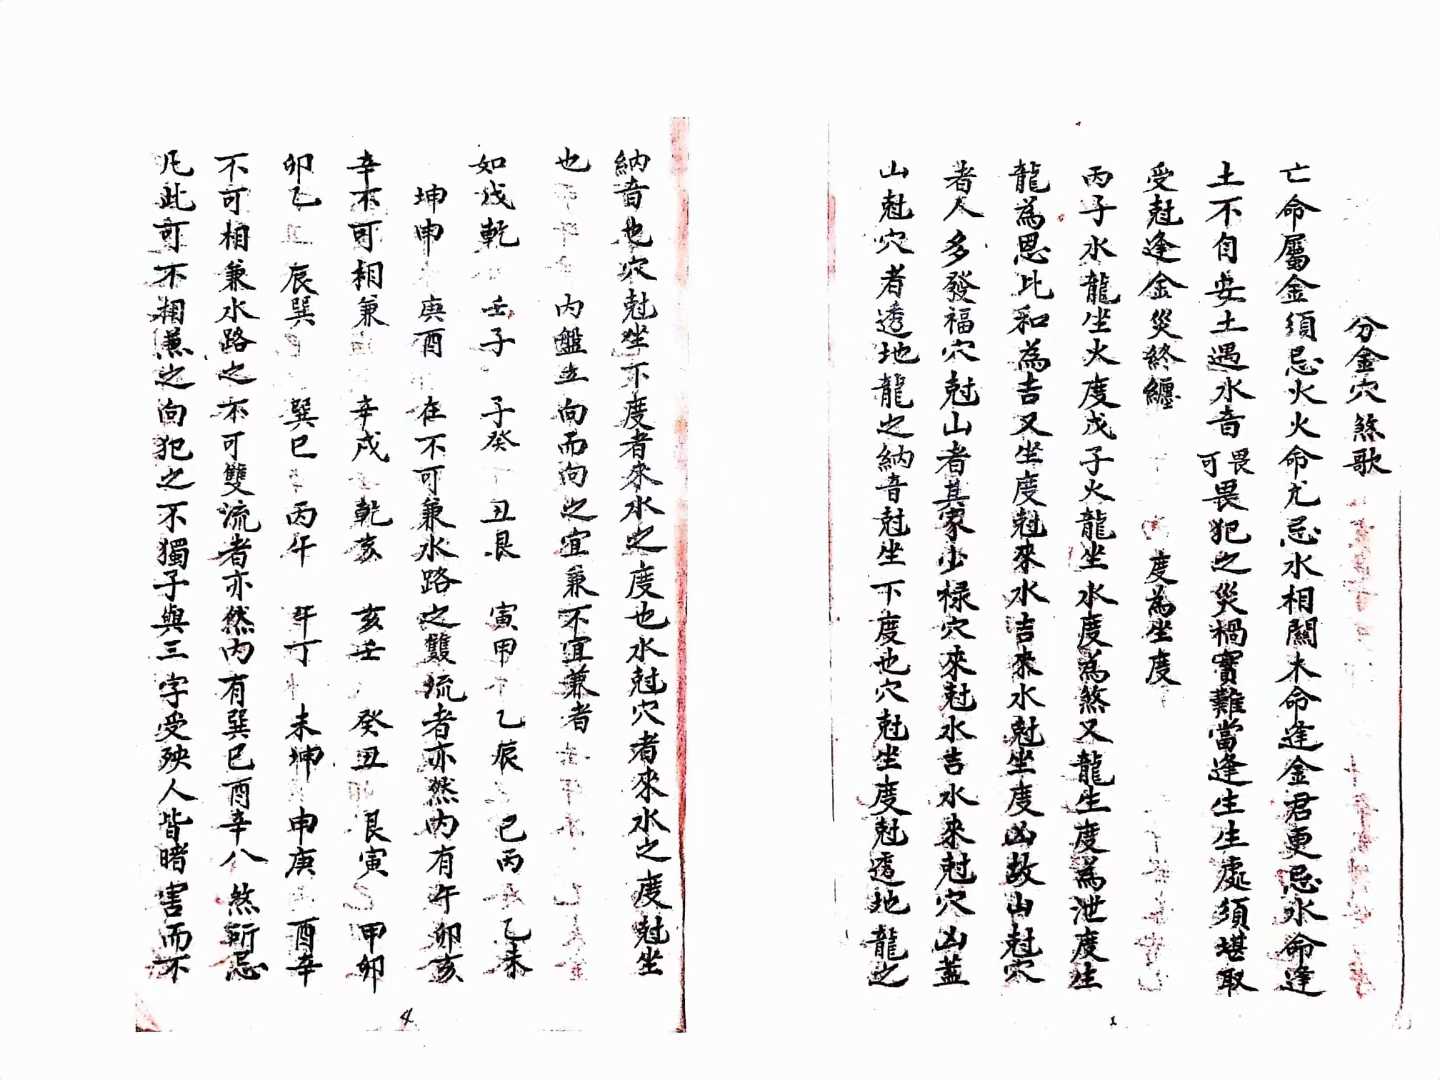 分金穴煞歌
亡命屬金須忌火火命尤忌水相關木命逢金君更忌水命逢
土不自安土遇水音可畏畏犯之災禍實難當逢生生處須堪取
受尅逢金災終纏 度為坐度
丙子水龍坐火度戊子火龍坐水度為煞又龍生度為泄度生
龍為恩比和為吉又坐度尅來水吉來水尅坐度凶故山尅穴
者人多發福穴尅山者其家少祿穴來尅水吉水來尅穴凶蓋
山尅穴者透地龍之納音尅坐下度也穴尅坐度尅透地龍之
納音也穴尅坐下度者來水之度也水尅穴者來水之度尅坐
也 內盤立向而向之宜兼不宜兼者
如戌乾 壬子 子癸 丑艮 寅甲 乙辰 巳丙 乙未
坤申 庚酉 在不可兼水路之雙流者亦然內有午卯亥
辛不可相兼 辛戌 乾亥 亥壬 癸丑 艮寅 甲卯
卯乙 辰巽 巽巳 丙午 午丁 未坤 申庚 酉辛
不可相兼水路之不可雙流者亦然內有巽巳酉辛八煞所忌
凡此可不相兼之向犯之不獨子與三字受殃人皆暗害而不
4
1